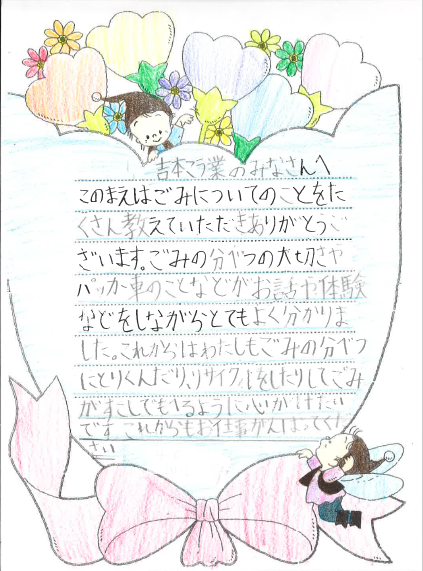 吉本こう業のみなさんへ
このまえはごみについてのことをた
くさん教えていただきありがとうご
ざいます。ごみの分べつの大切さや
パッカー車のことなどがお話や体験
などをしながらとてもよく分かりま
した。これからはわたしもごみの分べつ
にとりくんだり、リサイクルをしたりしてごみ
がすこしでもへるように心がけたい
です。これからもお仕事がんばってくだ
さい